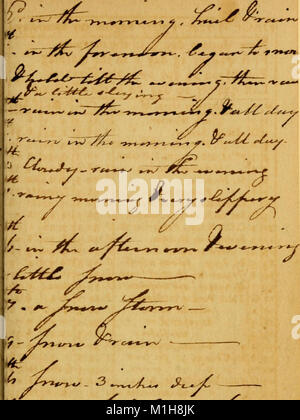 in the morning, hail & rain
th
- in the forenoon, began to snow
& held till the evening, then rain
& a little sleying -
- rain in the morning, & all day
rain in the morning, & all day.
Cloudy - rain in the evening
rainy morning & very slippery
th
- in the afternoon & evening
little snow
th
- a snow storm -
- snow & rain -
th
snow - 3 inches deep -
alamy stock photo
M1H8JK